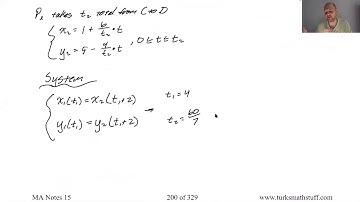 P₂ takes t₂ total from C to D
x₂ = 1 + 60/t₂ · t
y₂ = 9 - 4/t₂ · t , 0 ≤ t ≤ t₂
System
x₁(t₁) = x₂(t₁+2) → t₁ = 4
y₁(t₁) = y₂(t₁+2) t₂ = 60/7
MA Notes 15 200 of 329 www.turksmathstuff.com